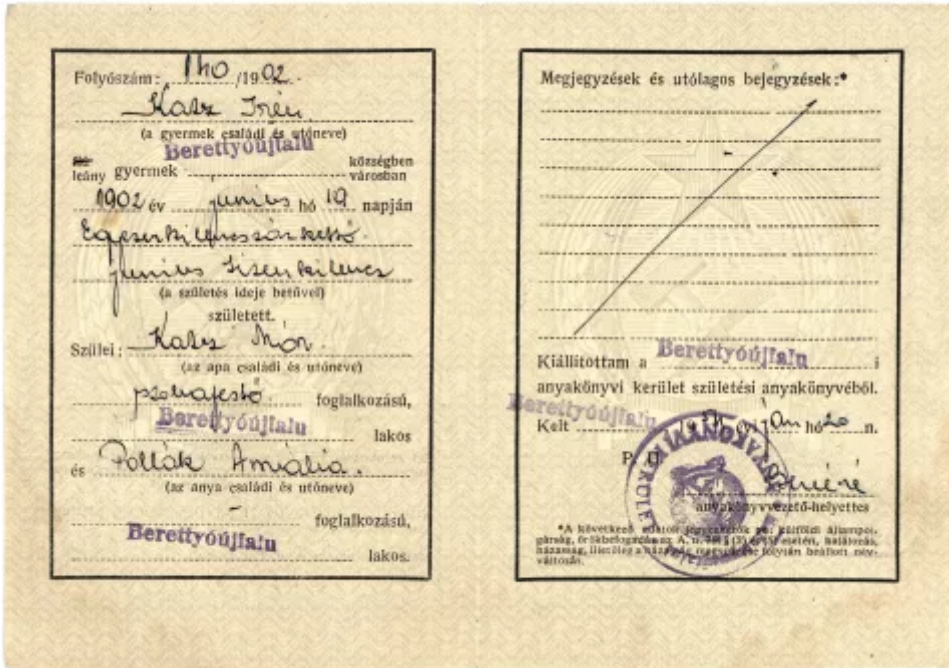 Folyószám: 140 /1902.
Katz Irén
(a gyermek családi és utóneve)
Berettyóújfalu
leány gyermek községben
városban
1902 év junius hó 19 napján
Egyezerkilencszázkettő
junius tizenkilenc
(a születés ideje betűvel)
született.
Szülei: Katz Mór
(az apa családi és utóneve)
szobafestő foglalkozású,
Berettyóújfalu lakos
és Pollák Amália.
(az anya családi és utóneve)
- foglalkozású,
Berettyóújfalu lakos.
Megjegyzések és utólagos bejegyzések:*
Kiállítottam a Berettyóújfalu i
anyakönyvi kerület születési anyakönyvéből.
Berettyóújfalu
Kelt hó 20 n.
P. H.
anyakönyvvezető-helyettes
*A következő adatok jegyzendők be: külföldi állampol-
gárság, örökbefogadás az A. esetén, halálozás,
házasság, illetőleg a házasság megszűnése folytán beállott név-
változás.